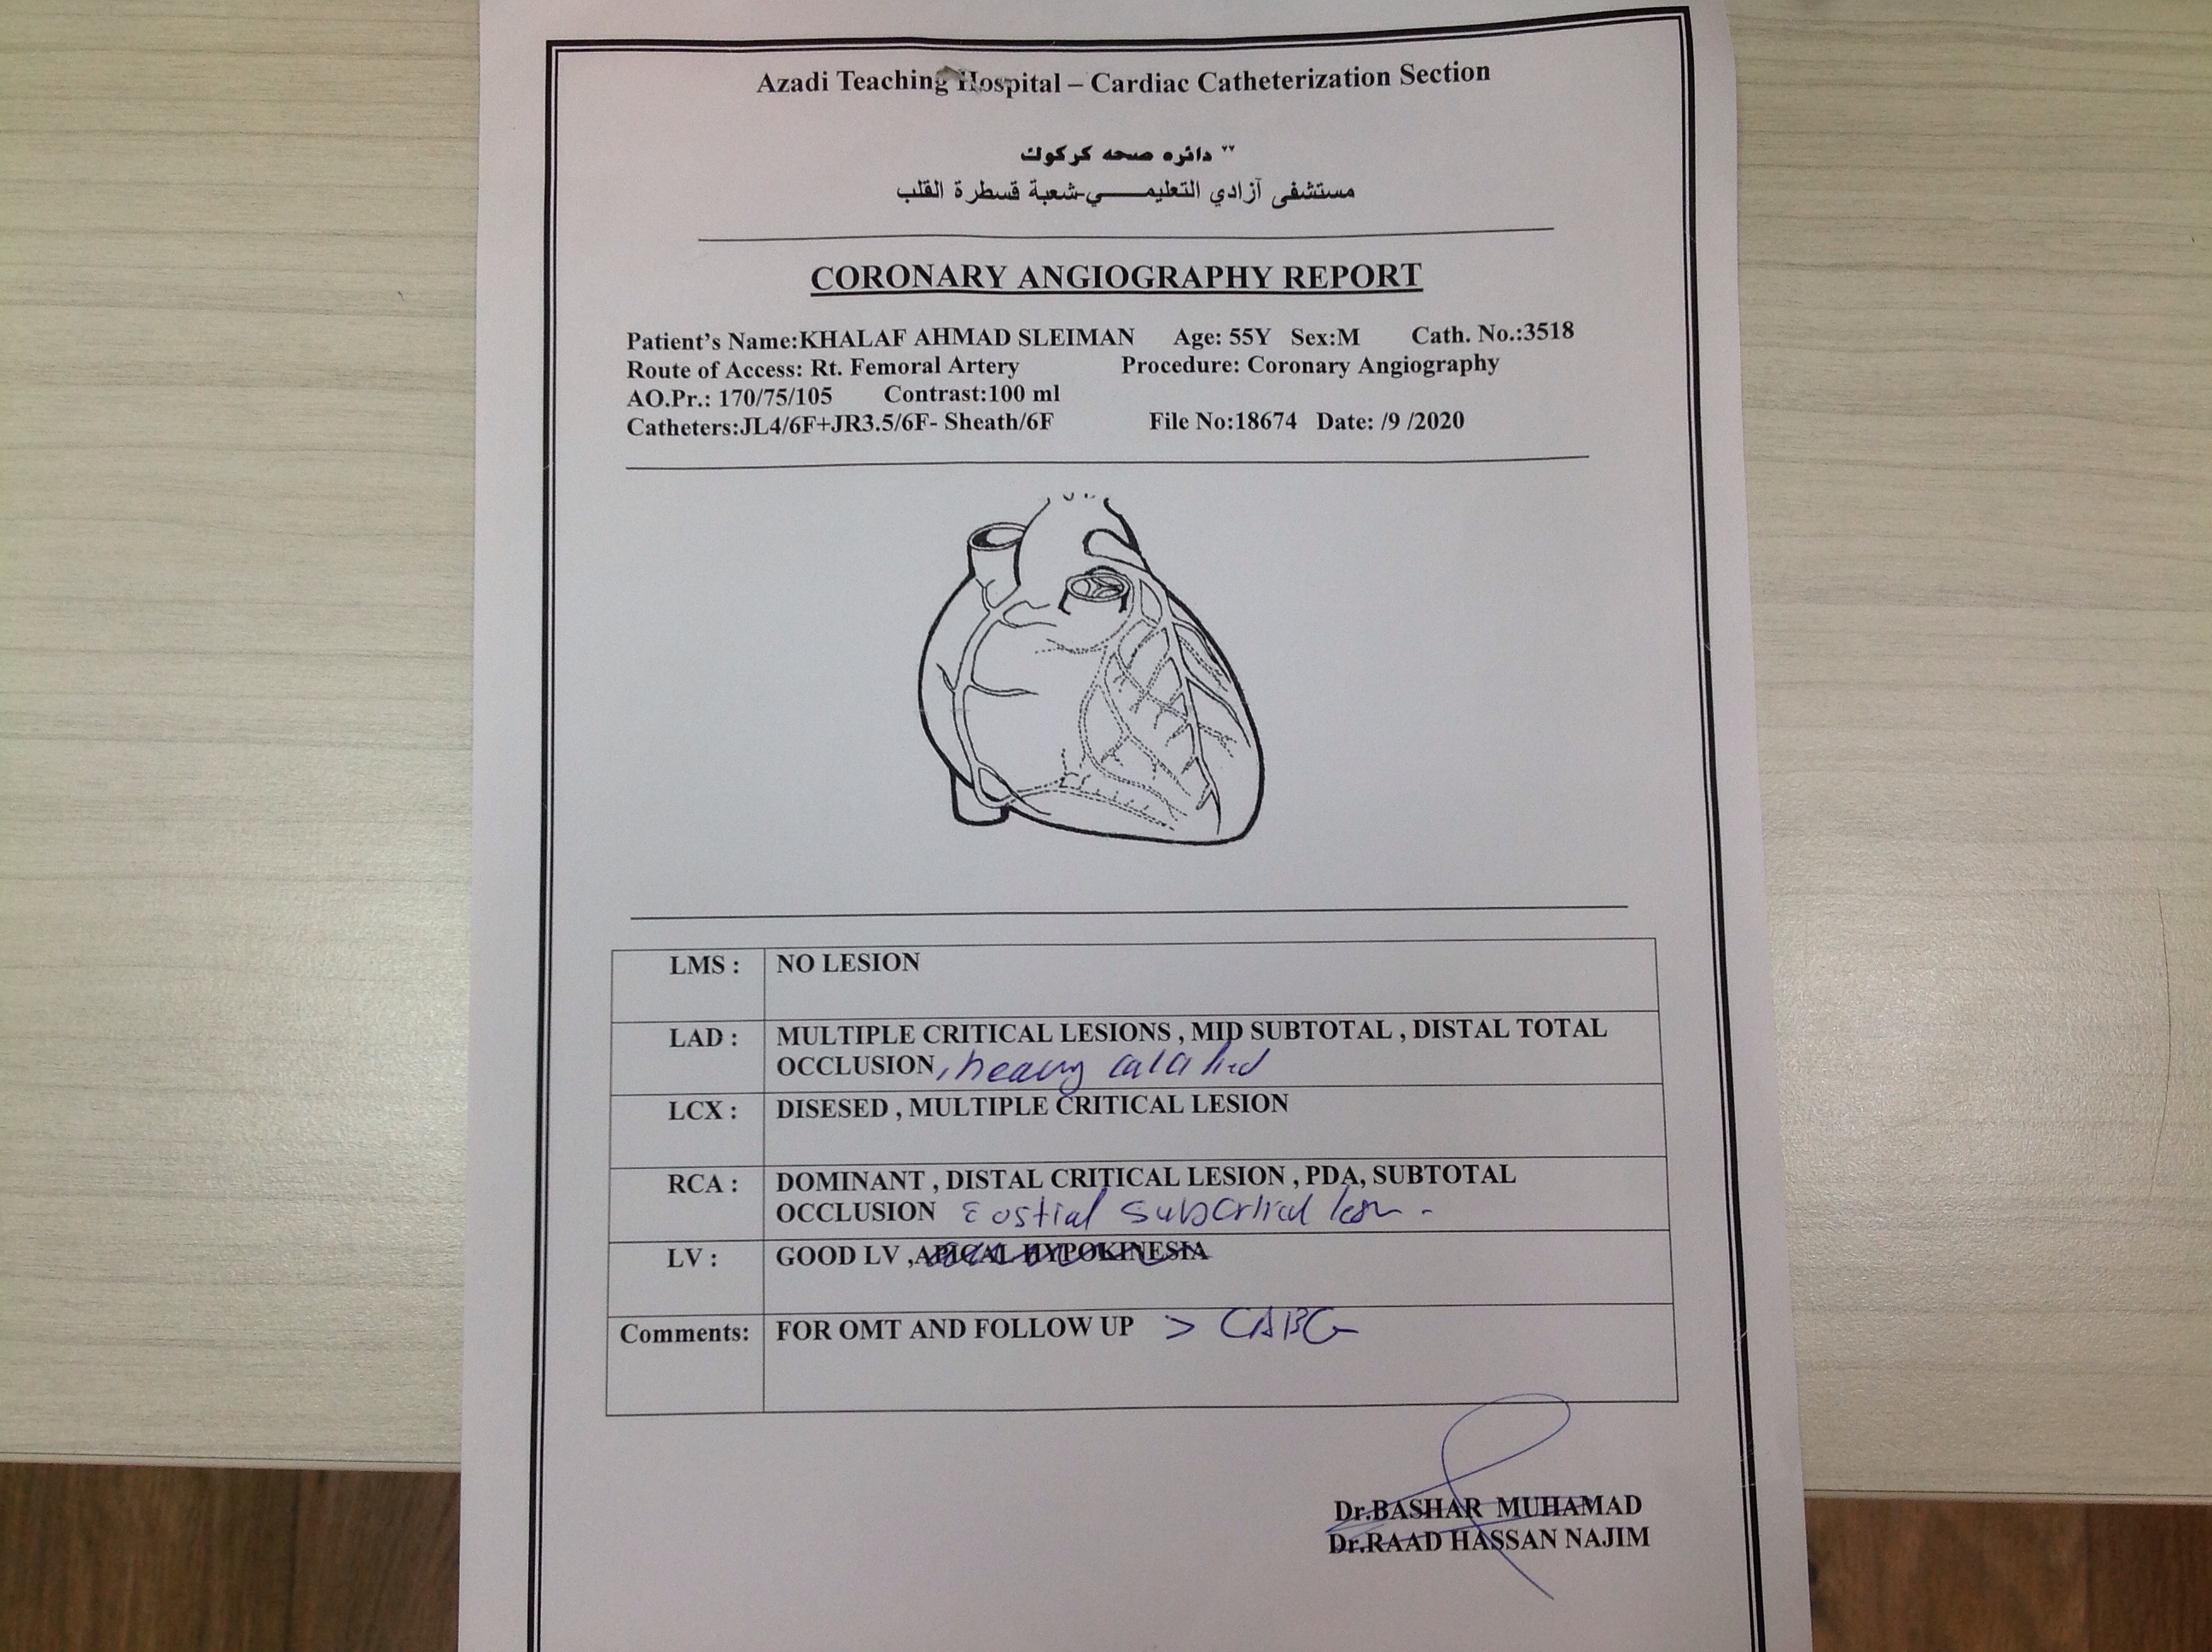 Azadi Teaching Hospital – Cardiac Catheterization Section
دائره صحه كركوك "
مستشفى آزادي التعليمـــــي-شعبة قسطرة القلب
CORONARY ANGIOGRAPHY REPORT
Patient's Name:KHALAF AHMAD SLEIMAN Age: 55Y Sex:M Cath. No.:3518
Route of Access: Rt. Femoral Artery Procedure: Coronary Angiography
AO.Pr.: 170/75/105 Contrast:100 ml
Catheters:JL4/6F+JR3.5/6F- Sheath/6F File No:18674 Date: /9 /2020
LMS : NO LESION
LAD : MULTIPLE CRITICAL LESIONS , MID SUBTOTAL , DISTAL TOTAL
OCCLUSION , heavy
LCX : DISESED , MULTIPLE CRITICAL LESION
RCA : DOMINANT , DISTAL CRITICAL LESION , PDA, SUBTOTAL
OCCLUSION ostial
LV : GOOD LV ,APICAL HYPOKINESIA
Comments: FOR OMT AND FOLLOW UP > CABG
Dr.BASHAR MUHAMAD
Dr.RAAD HASSAN NAJIM